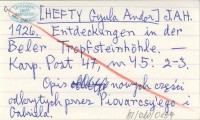 [HEFTY Gyula Andor] J.A.H.
1926. Entdeckungen in der
Beler Tropfsteinhöhle. —
Karp. Post 47, nr 45: 2-3.
Opis nowych części
odkrytych przez Piovarcsy'ego i